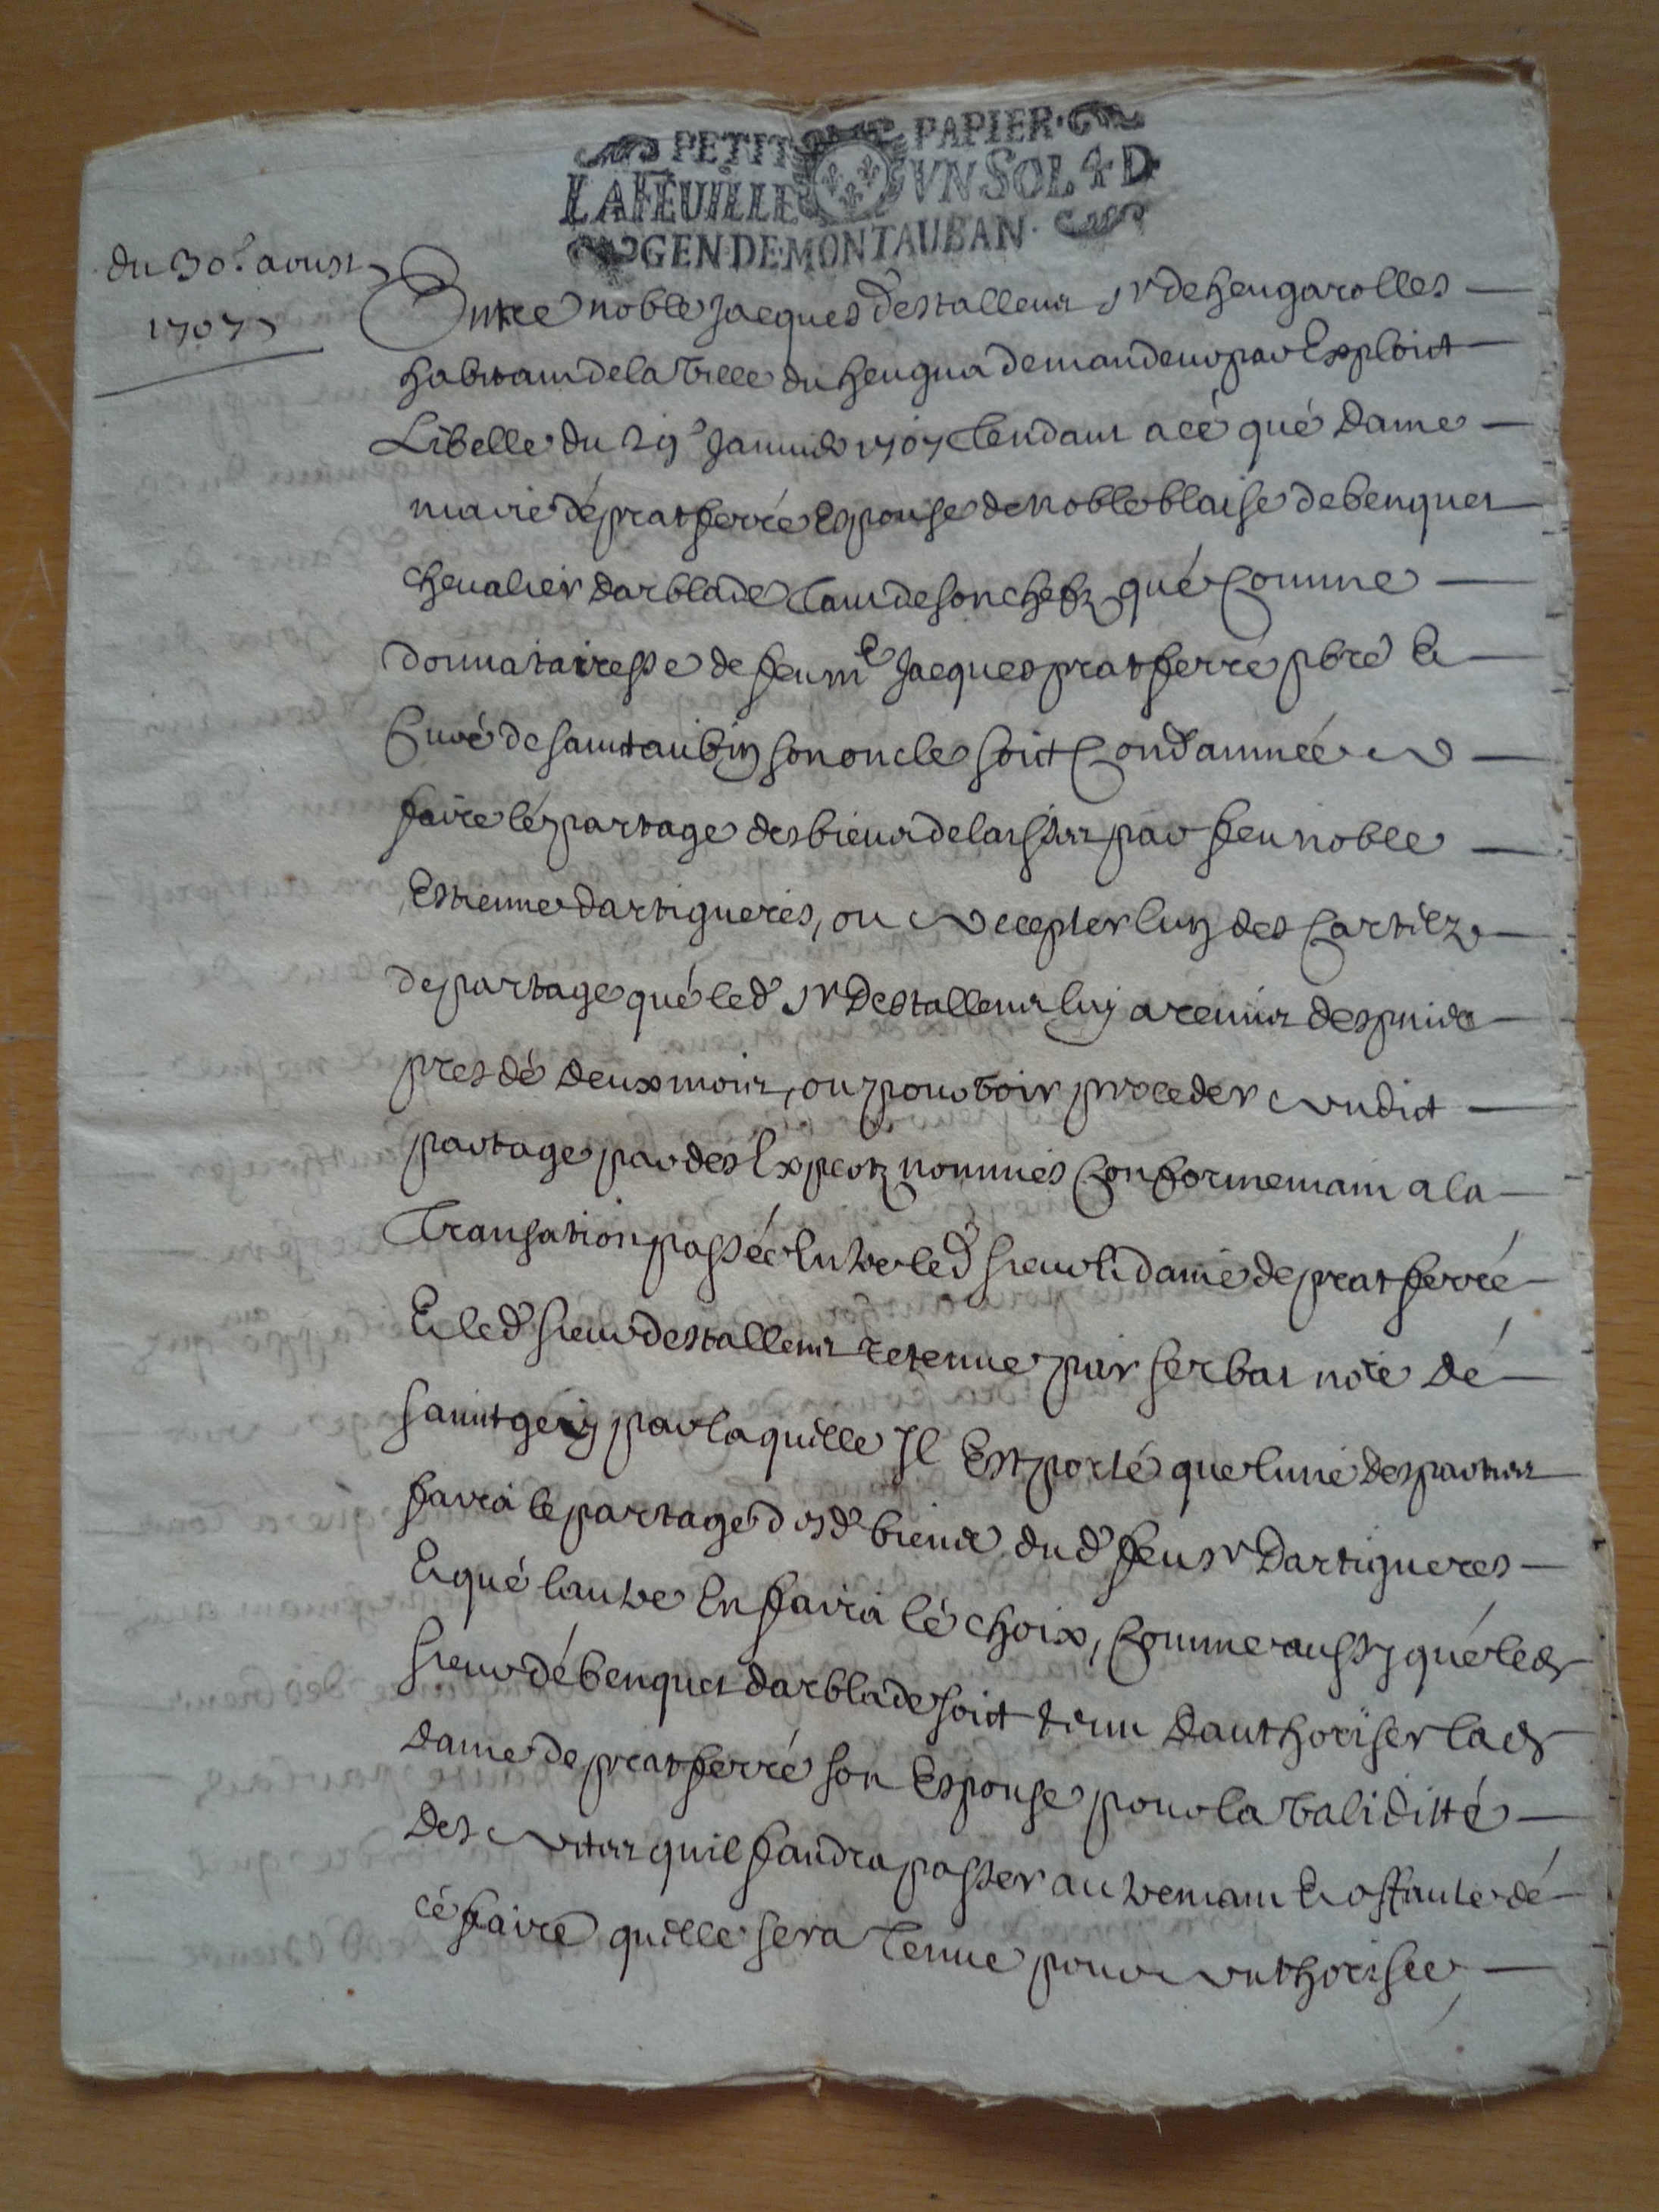 PETIT PAPIER
LAFEUILLE VN SOL 4 D
GEN·DE·MONTAUBAN
du 30e aoust
1707
Entre noble Jacques destalleux sr de heugarolles
habitant de la ville du heuga demandeur par Exploict
Libelle du 29e Januier 1707 tendant a cé qué Dame
marie dé pratferré Espouse de noble blaise debenquet
cheualier darblade tant de son chefz qué comme
donnataresse de feu me Jacques pratferré pbré Et
Curé de sainctaubin son oncle soit condamnée a
faire lé partage des biens delaissez par feu noble
Estienne dartigueres, ou accepter lun des cartiez
de partage qué led sr destalleux luy a remis despuis
pres dé deux mois, ou pour voir proceder audict
partage par des Expertz nommés conformemant a la
Transation passée Entre led sieur Et damé de pratferré
Et led sieur destalleux retenue par serbat noré dé
sainctgein par laquelle Il Est porté que luné des parties
faira le partagé desd biens dud feu sr Dartigueres
Et qué lautre En faira lé choix, comme aussy qué led
sieur dé benquet darblade soict tenu dauthoriser lad
dame de pratferré son Espouse pour la validitté
des actes quil faudra passer autremant Et a faute dé
cé fairé quelle sera tenue pour authorisée